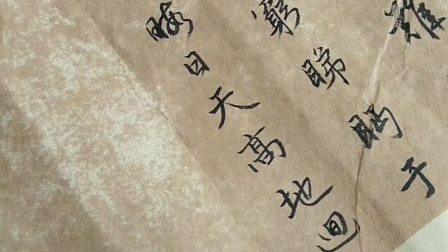 難
窮睇眄于
暇日天高地迥